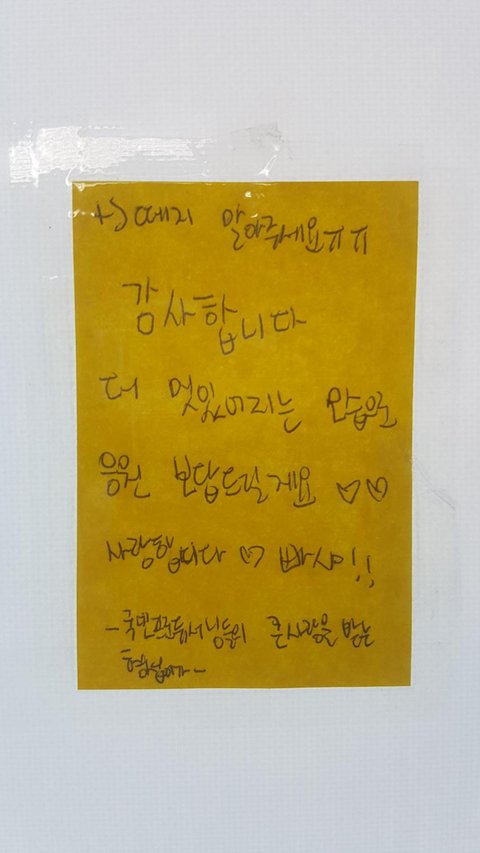 +) 떼지 말아주세요ㅠㅠ
감사합니다
더 멋있어지는 모습으로
응원 보답드릴게요 ♡♡
사랑합니다 ♡ 빠샤!!
-국민프로듀서님들의 큰 사랑을 받는
형섭이가-